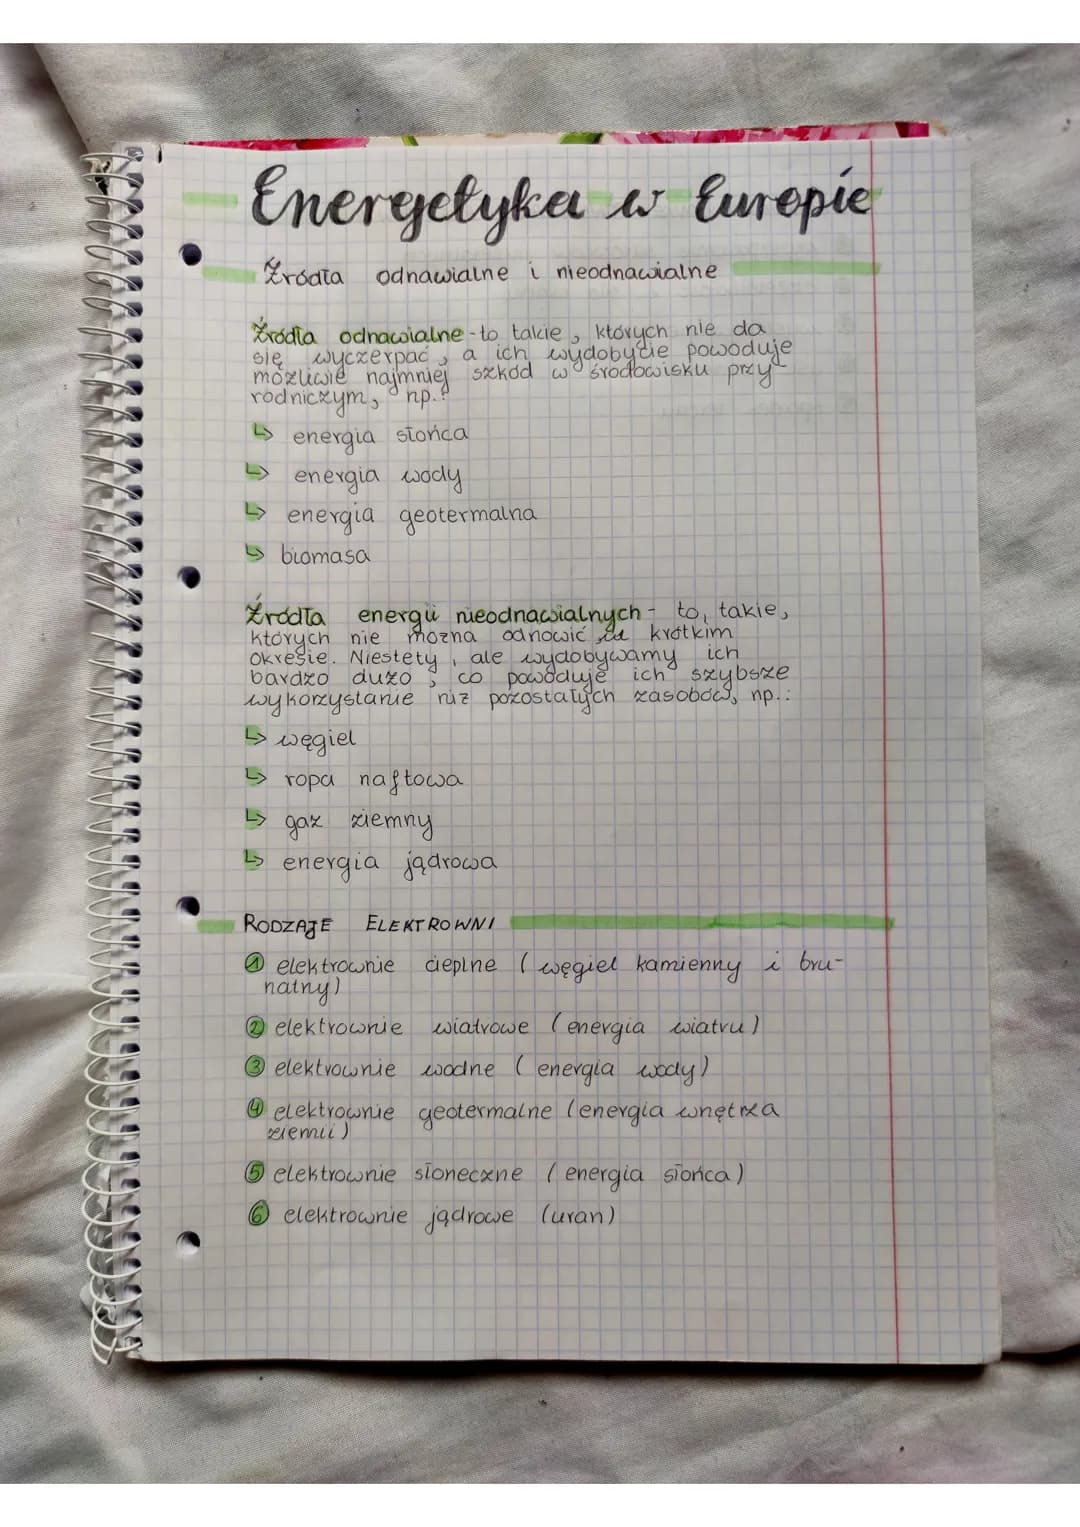 Energetyka w Europie
Źródła odnawialne i nieodnawialne
Źródła odnawialne - to takie, których nie da
się wyczerpać, a ich wydobycie powoduje
możliwie najmniej szkód w środowisku przy-
rodniczym, np.:
↳ energia słońca
↳ energia wody
↳ energia geotermalna
↳ biomasa
Źródła energii nieodnawialnych - to takie,
których nie można odnowić w krótkim
okresie. Niestety, ale wydobywamy ich
bardzo dużo, co powoduje ich szybsze
wykorzystanie niż pozostałych zasobów, np.:
↳ węgiel
↳ ropa naftowa
↳ gaz ziemny
↳ energia jądrowa
RODZAJE ELEKTROWNI
1 elektrownie cieplne (węgiel kamienny i bru-
natny)
2 elektrownie wiatrowe (energia wiatru)
3 elektrownie wodne (energia wody)
4 elektrownie geotermalne (energia wnętrza
ziemii)
5 elektrownie słoneczne (energia słońca)
6 elektrownie jądrowe (uran)